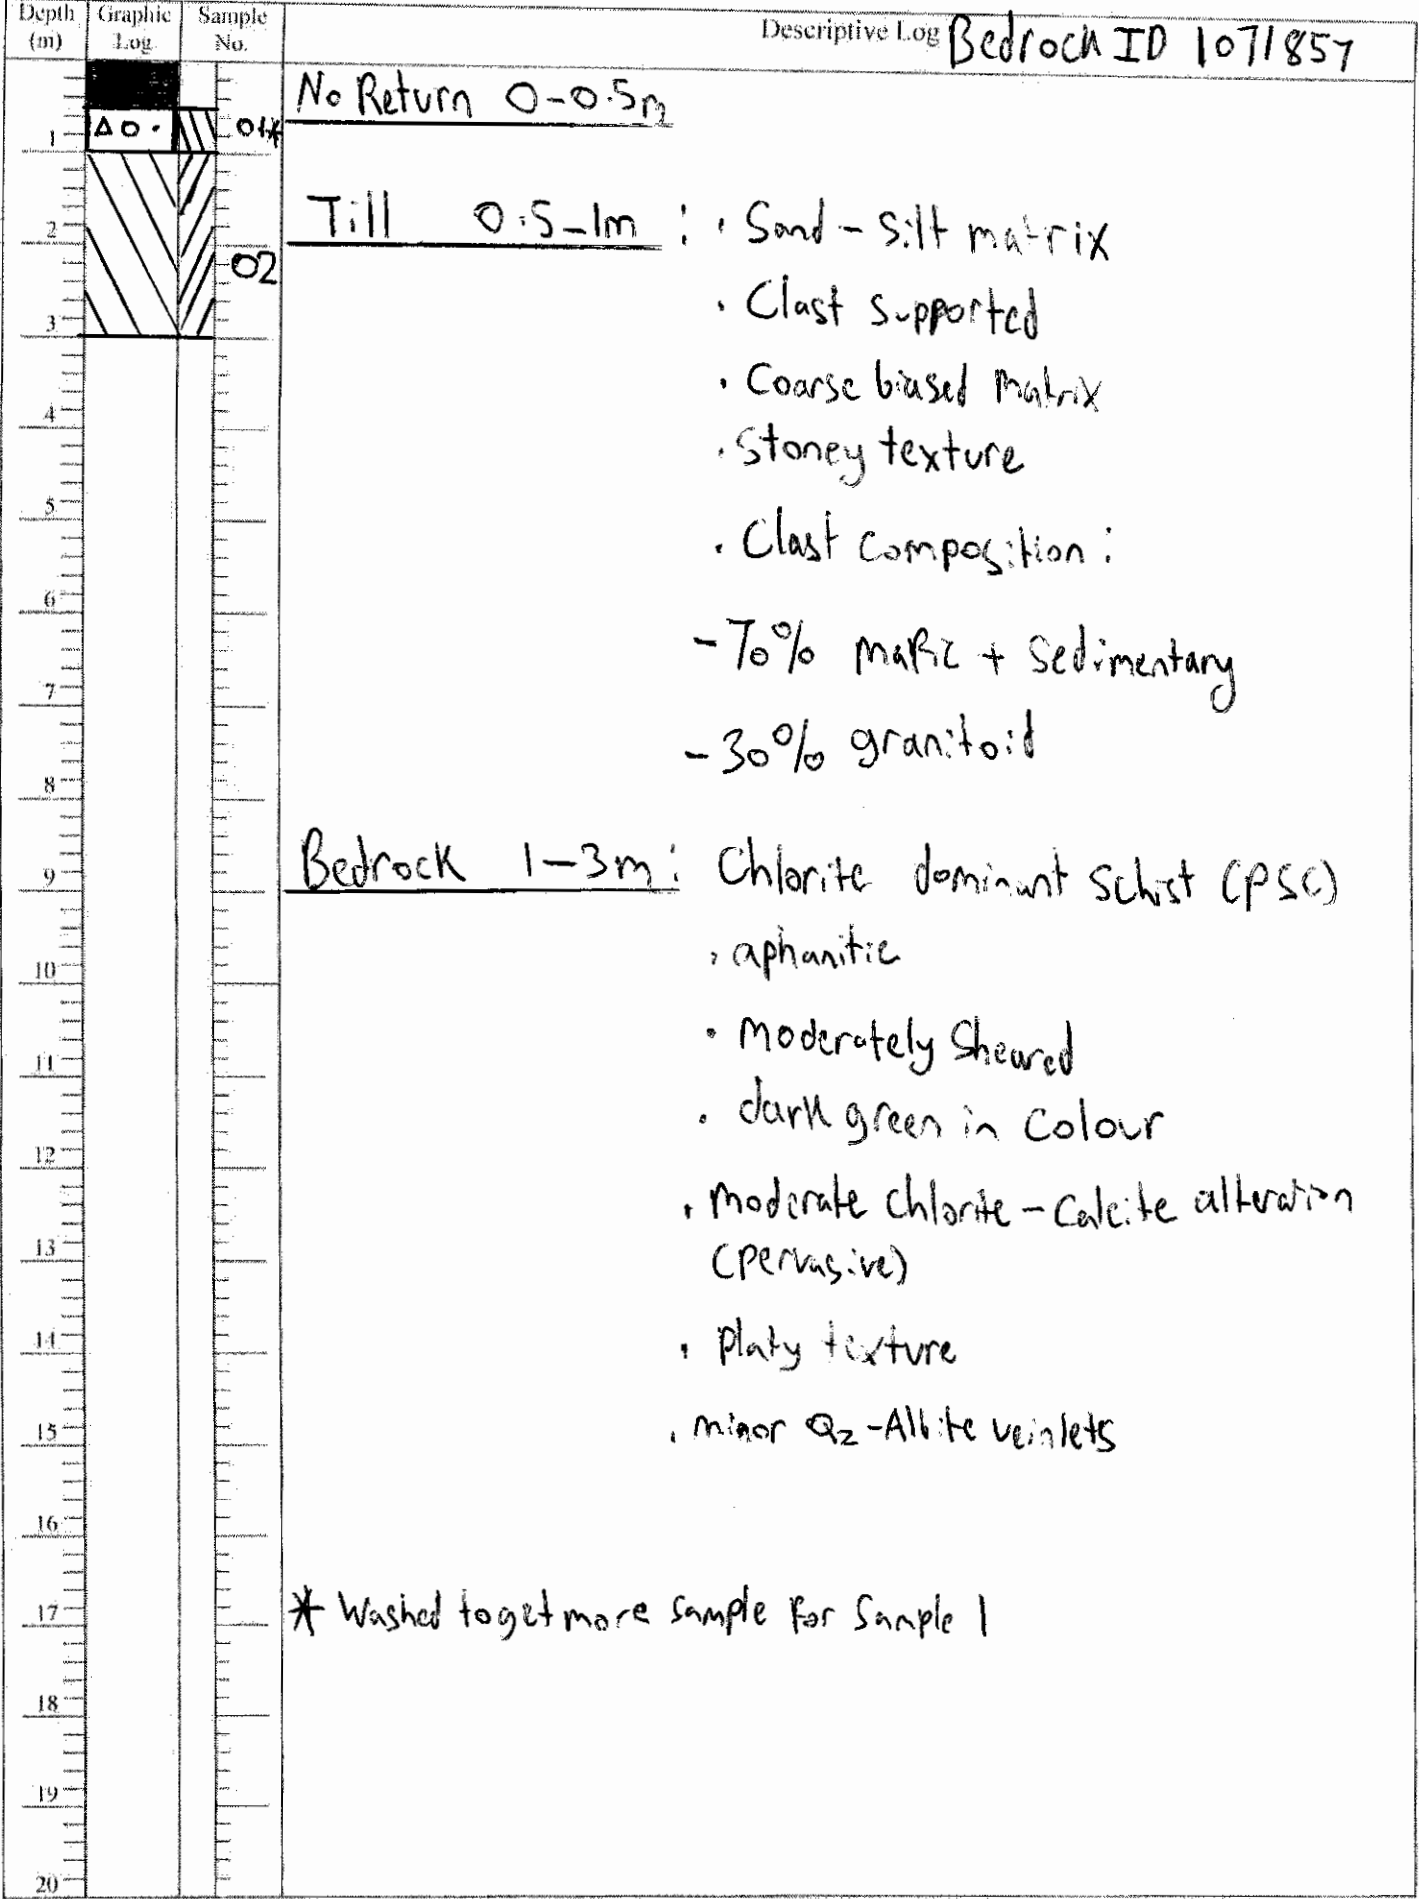 Depth (m) Graphic Log Sample No. Descriptive Log Bedrock ID 1071857
No Return 0-0.5m
01*
1
Till 0.5-1m : • Sand - Silt matrix
2
02
• Clast supported
3
• Coarse biased Matrix
4
• Stoney texture
5
• Clast composition :
6
-70% mafic + sedimentary
7
-30% granitoid
8
Bedrock 1-3m : Chlorite dominant Schist (PSC)
9
• aphanitic
10
• Moderately Sheared
11
• dark green in colour
12
• Moderate chlorite - calcite alteration
13
(pervasive)
14
• platy texture
15
• minor Qz-Albite veinlets
16
17
* Washed to get more sample for Sample 1
18
19
20